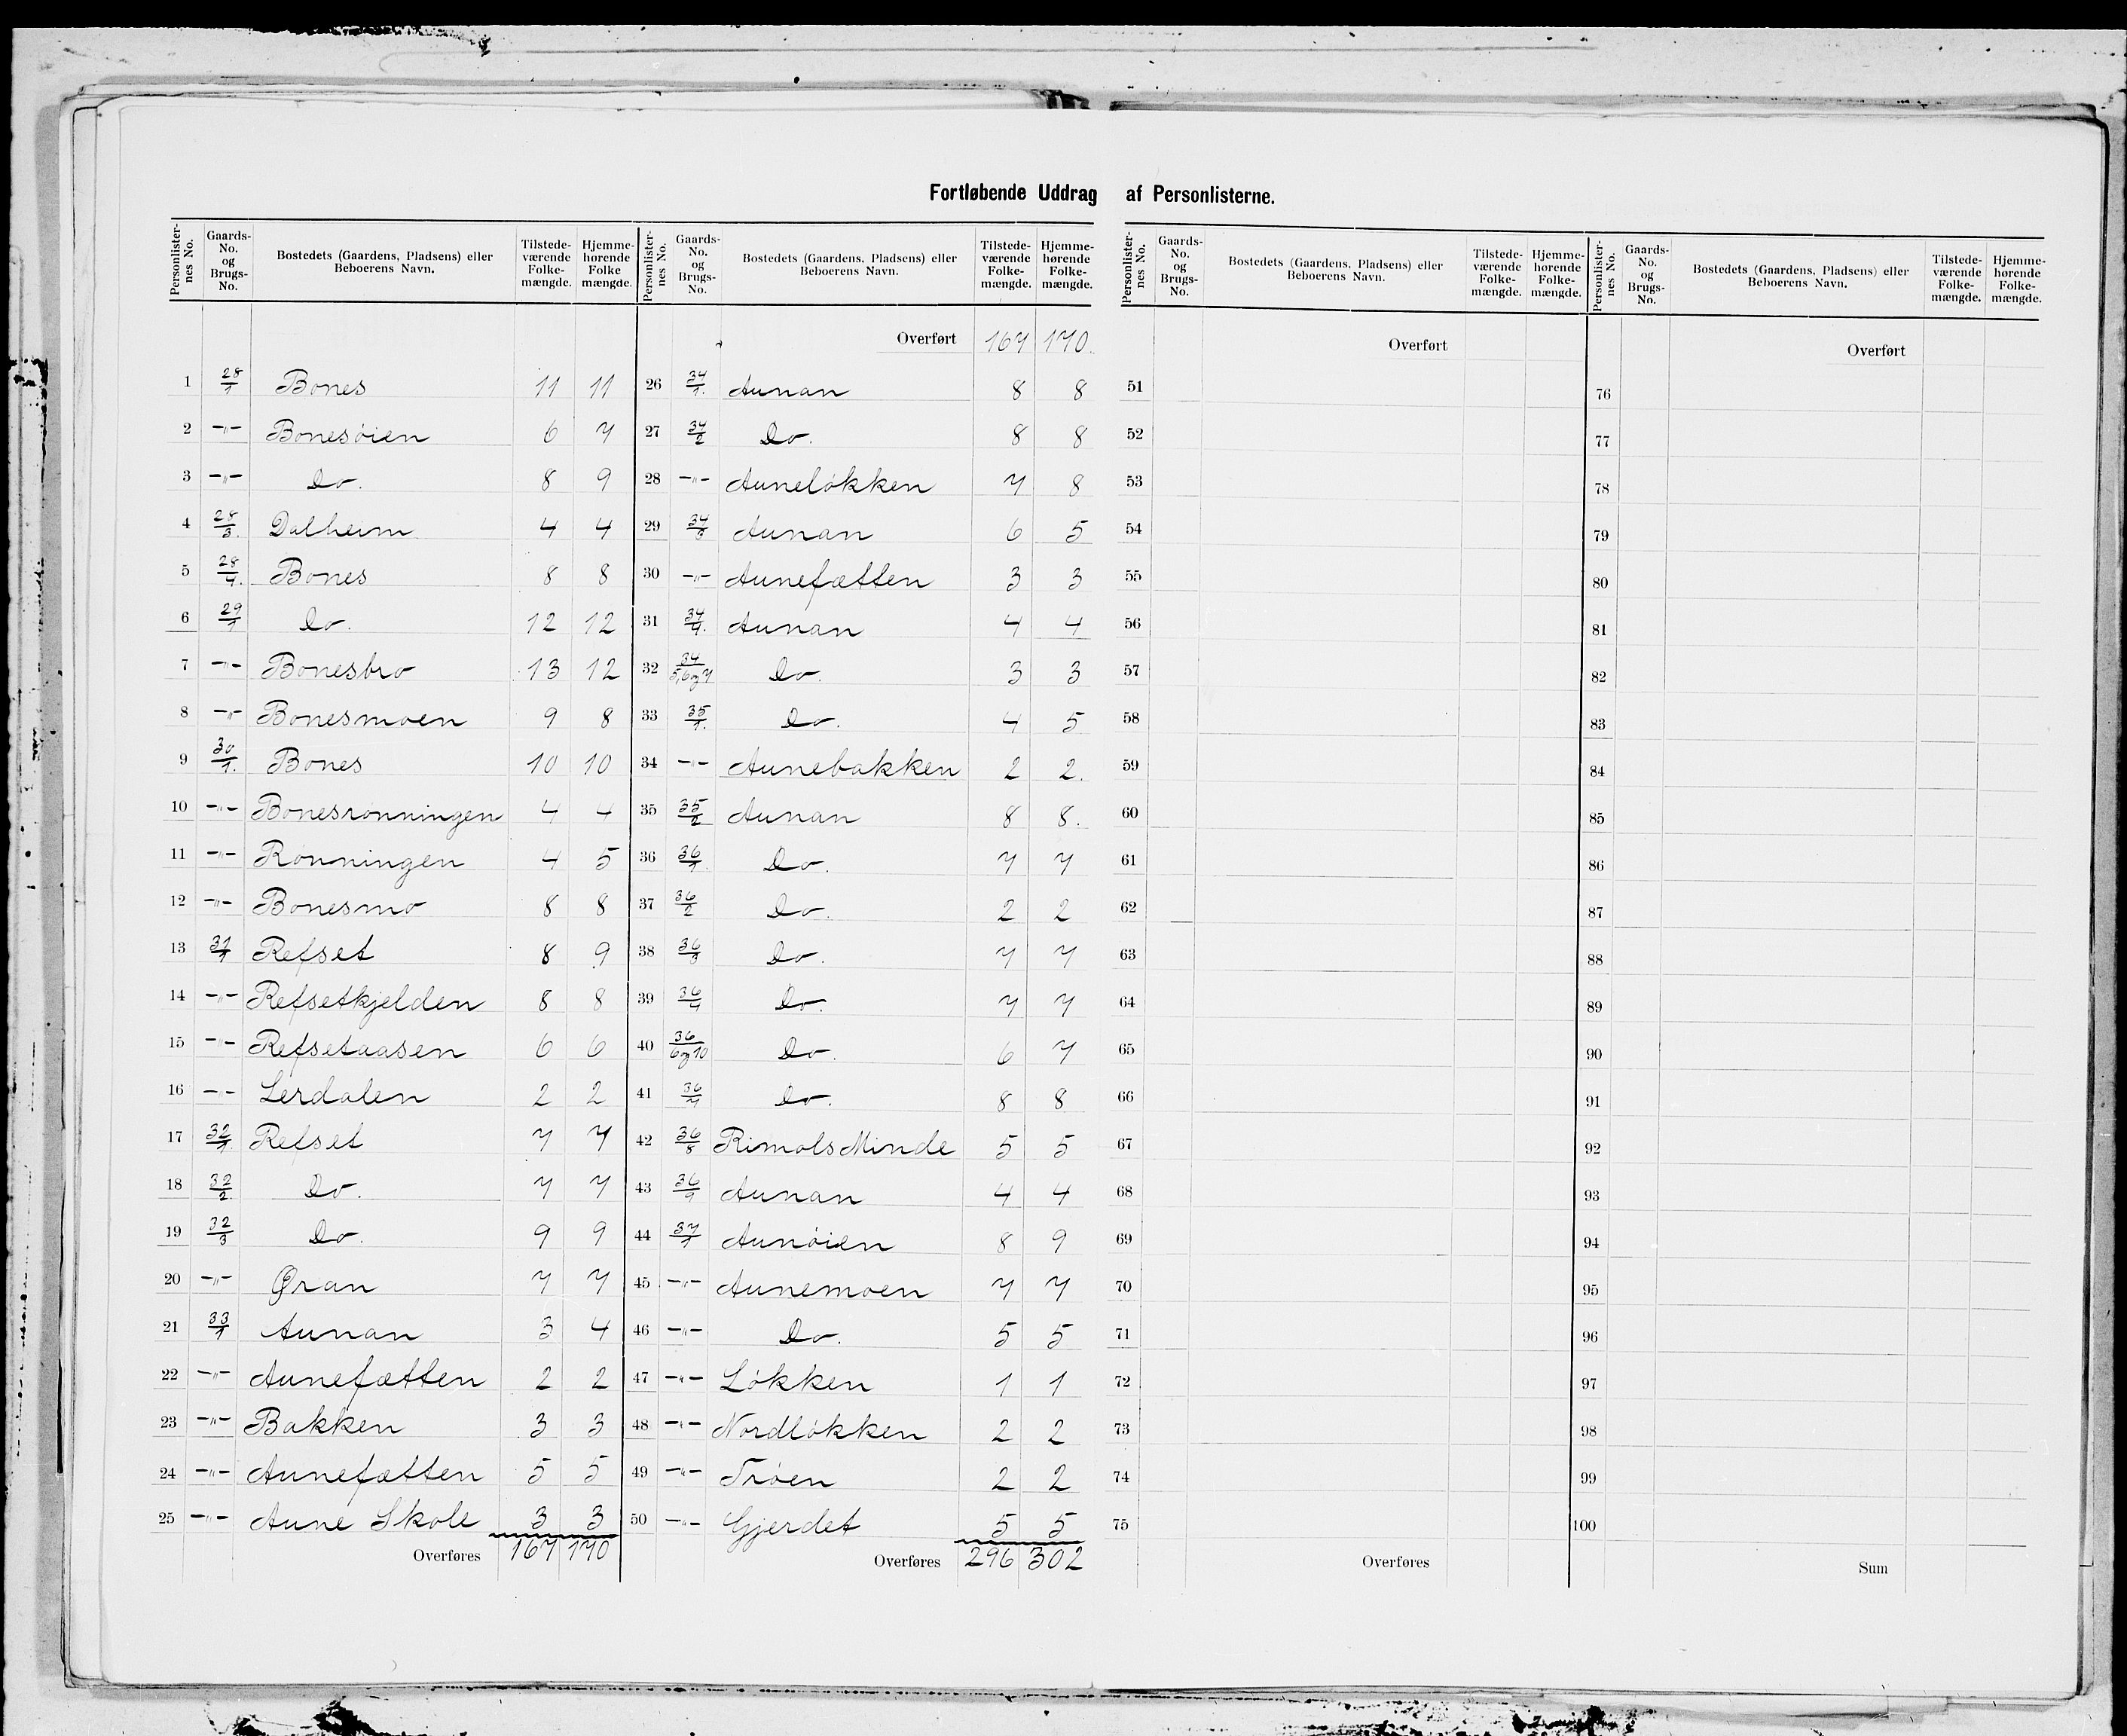 Fortløbende Uddrag af Personlisterne.
Personlisternes No. | Gaards-No. og Brugs-No. | Bostedets (Gaardens, Pladsens) eller Beboerens Navn. | Tilstedeværende Folkemængde. | Hjemmehørende Folkemængde.
1 28/1 Bones 11 11
2 -"- Bonesøien 6 7
3 -"- Do. 8 9
4 28/3. Dalheim 4 4
5 28/4. Bones 8 8
6 29/1 Do. 12 12
7 -"- Bonesbro 13 12
8 -"- Bonesmoen 9 8
9 30/1. Bones 10 10
10 -"- Bonesrønningen 4 4
11 -"- Rønningen 4 5
12 -"- Bonesmo 8 8
13 31/1 Refset 8 9
14 -"- Refsetkjelden 8 8
15 -"- Refsetaasen 6 6
16 -"- Lerdalen 2 2
17 32/1. Refset 7 7
18 32/2. Do. 7 7
19 32/3 Do. 9 9
20 -"- Øran 7 7
21 33/1 Aunan 3 4
22 -"- Aunefætten 2 2
23 -"- Bakken 3 3
24 -"- Aunefætten 5 5
25 -"- Aune Skole 3 3
Overføres 167 170
Personlisternes No. | Gaards-No. og Brugs-No. | Bostedets (Gaardens, Pladsens) eller Beboerens Navn. | Tilstedeværende Folkemængde. | Hjemmehørende Folkemængde.
Overført 167 170.
26 34/1. Aunan 8 8
27 34/2 Do. 8 8
28 -"- Auneløkken 7 8
29 34/3 Aunan 6 5
30 -"- Aunefætten 3 3
31 34/4. Aunan 4 4
32 34/5,6og7 Do. 3 3
33 35/1. Do. 4 5
34 -"- Aunebakken 2 2.
35 35/2 Aunan 8 8.
36 36/1 Do. 7 7
37 36/2 Do. 2 2
38 36/3 Do. 7 7
39 36/4 Do. 7 7
40 36/6og10 Do. 6 7
41 36/7 Do. 8 8
42 36/8 Rimols Minde 5 5
43 36/9 Aunan 4 4
44 37/1 Aunøien 8 9
45 -"- Aunemoen 7 7
46 -"- Do. 5 5
47 -"- Løkken 1 1
48 -"- Nordløkken 2 2
49 -"- Trøen 2 2
50 -"- Gjerdet 5 5
Overføres 296 302
Personlisternes No. | Gaards-No. og Brugs-No. | Bostedets (Gaardens, Pladsens) eller Beboerens Navn. | Tilstedeværende Folkemængde. | Hjemmehørende Folkemængde.
Overført
51
52
53
54
55
56
57
58
59
60
61
62
63
64
65
66
67
68
69
70
71
72
73
74
75
Overføres
Personlisternes No. | Gaards-No. og Brugs-No. | Bostedets (Gaardens, Pladsens) eller Beboerens Navn. | Tilstedeværende Folkemængde. | Hjemmehørende Folkemængde.
Overført
76
77
78
79
80
81
82
83
84
85
86
87
88
89
90
91
92
93
94
95
96
97
98
99
100
Sum